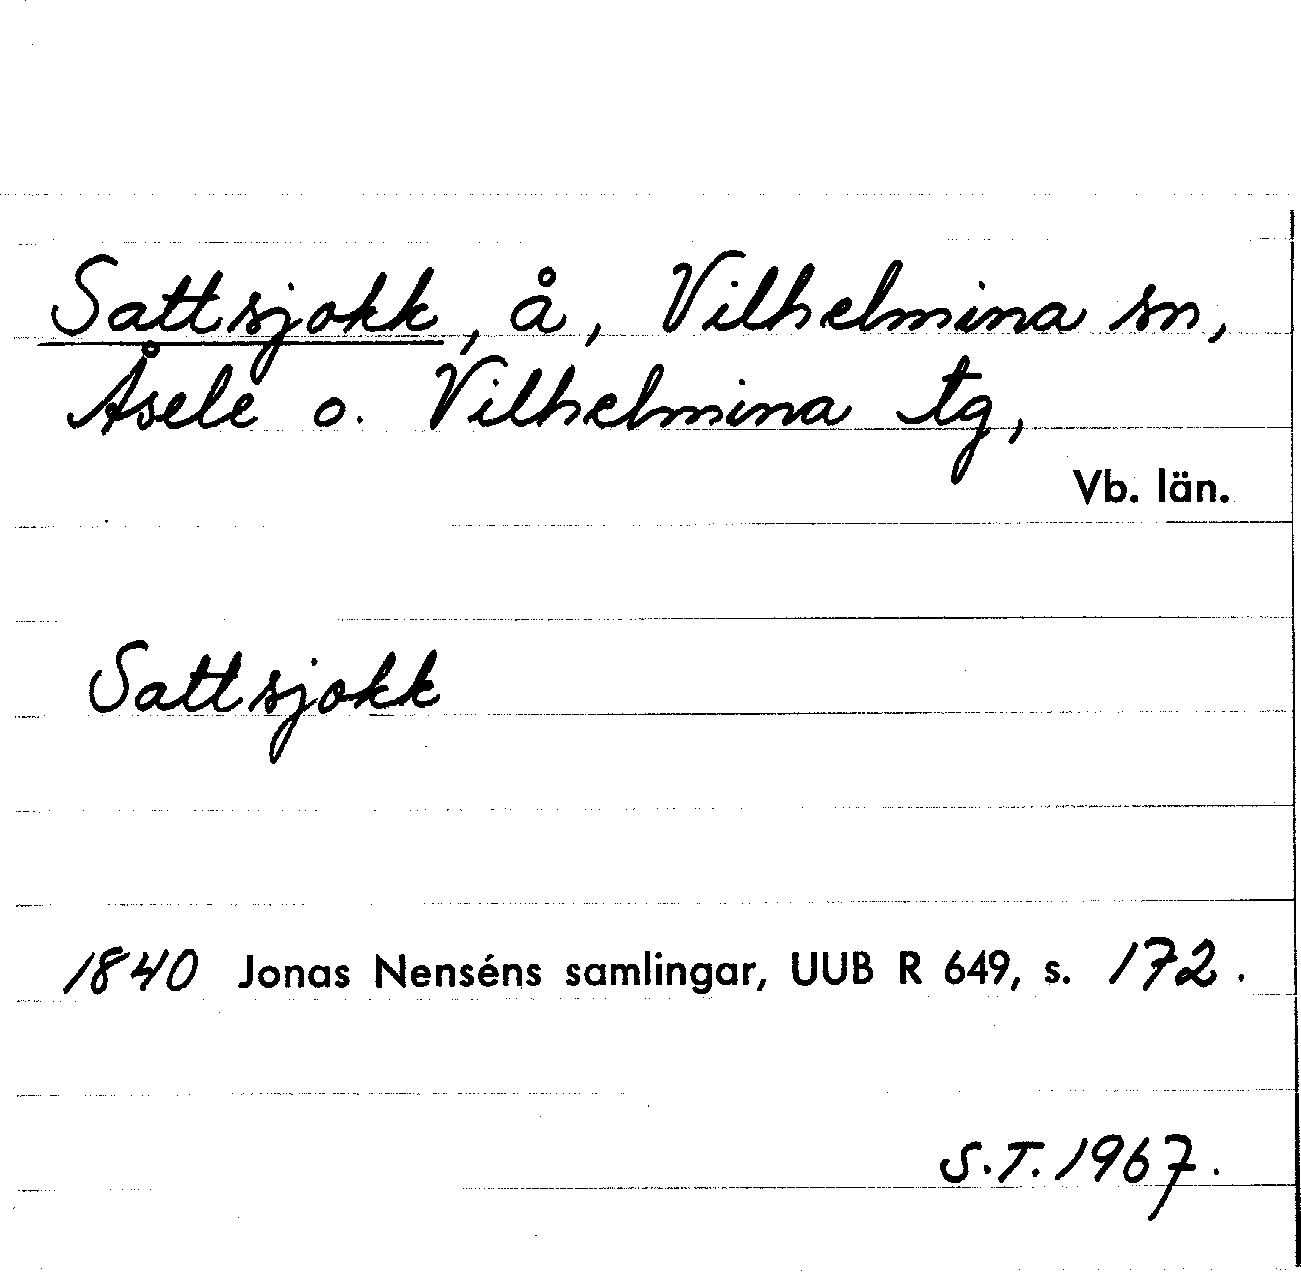 Sattsjokk, å, Vilhelmina sn,
Åsele o. Vilhelmina tg,
Vb. län.
Sattsjokk
1840 Jonas Nenséns samlingar, UUB R 649, s. 172.
S.T. 1967.